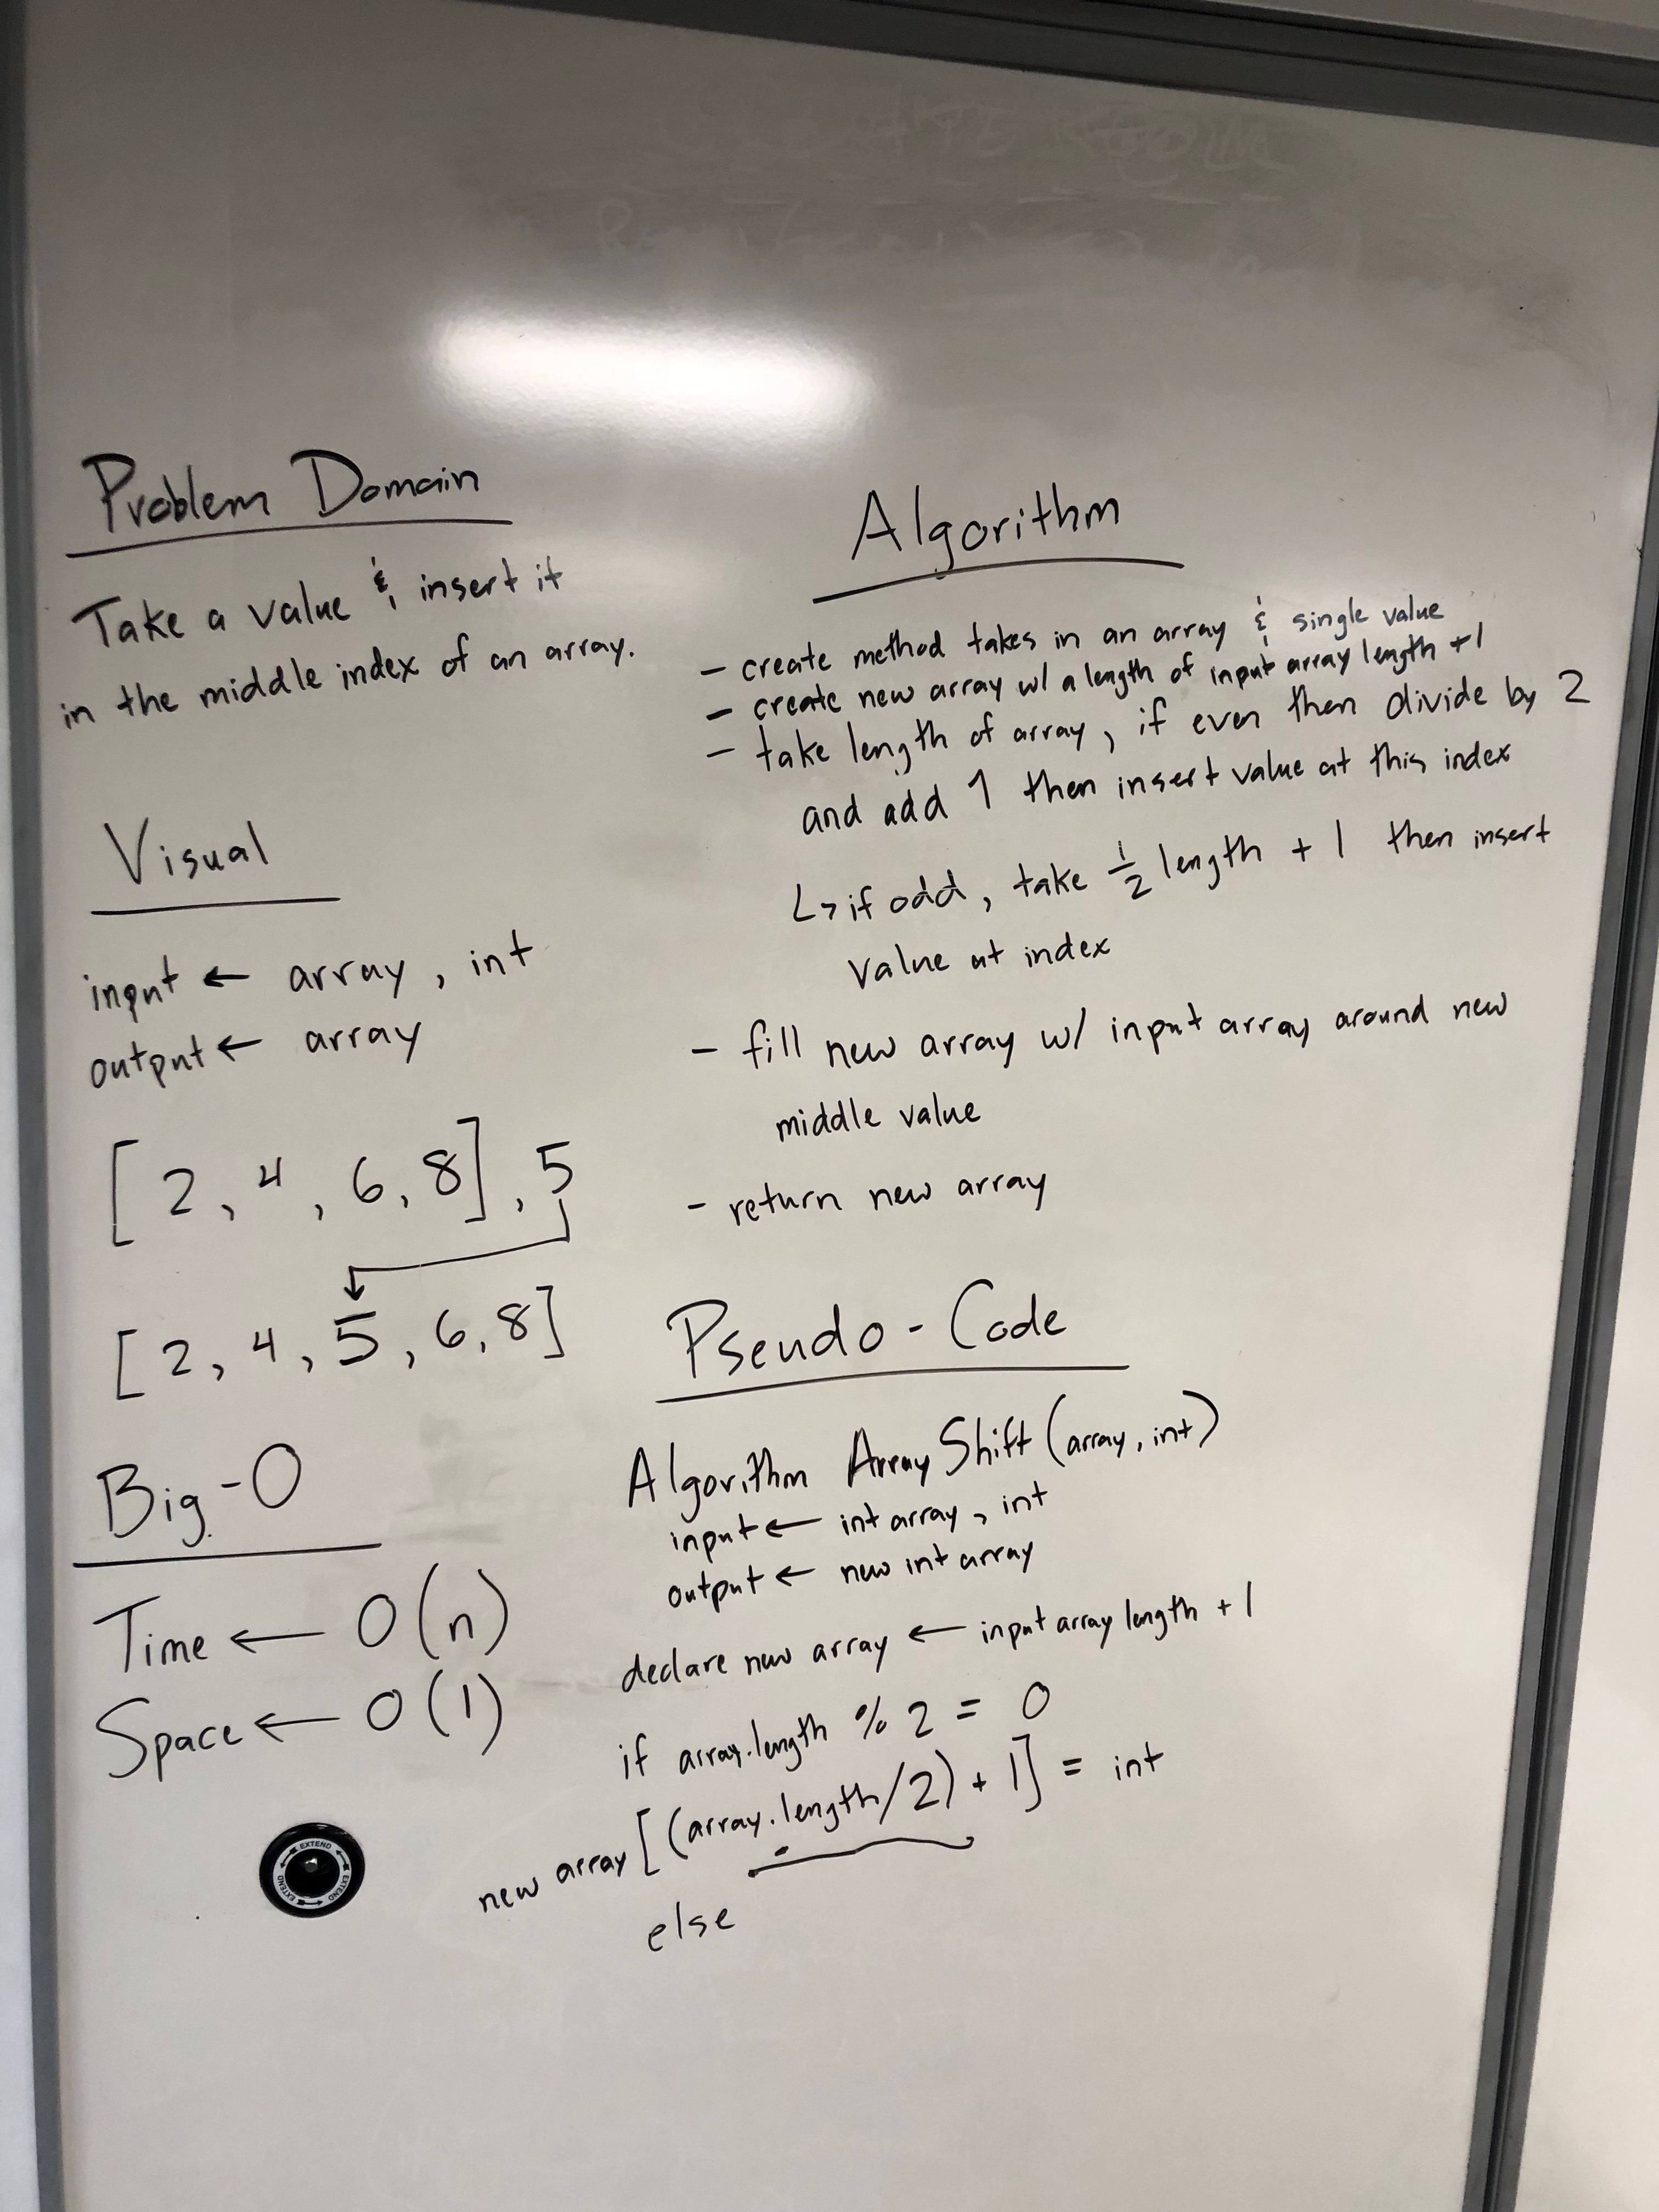 Problem Domain
Take a value & insert it
in the middle index of an array.
Visual
input ← array, int
output ← array
[2, 4, 6, 8], 5
[2, 4, 5, 6, 8]
Big-O
Time ← O(n)
Space ← O(1)
EXTEND EXTEND EXTEND
Algorithm
- create method takes in an array & single value
- create new array w/ a length of input array length +1
- take length of array, if even then divide by 2
and add 1 then insert value at this index
↳ if odd, take 1/2 length + 1 then insert
value at index
- fill new array w/ input array around new
middle value
- return new array
Pseudo-Code
Algorithm ArrayShift(array, int)
input ← int array, int
output ← new int array
declare new array ← input array length + 1
if array.length % 2 = 0
new array[(array.length/2) + 1] = int
else